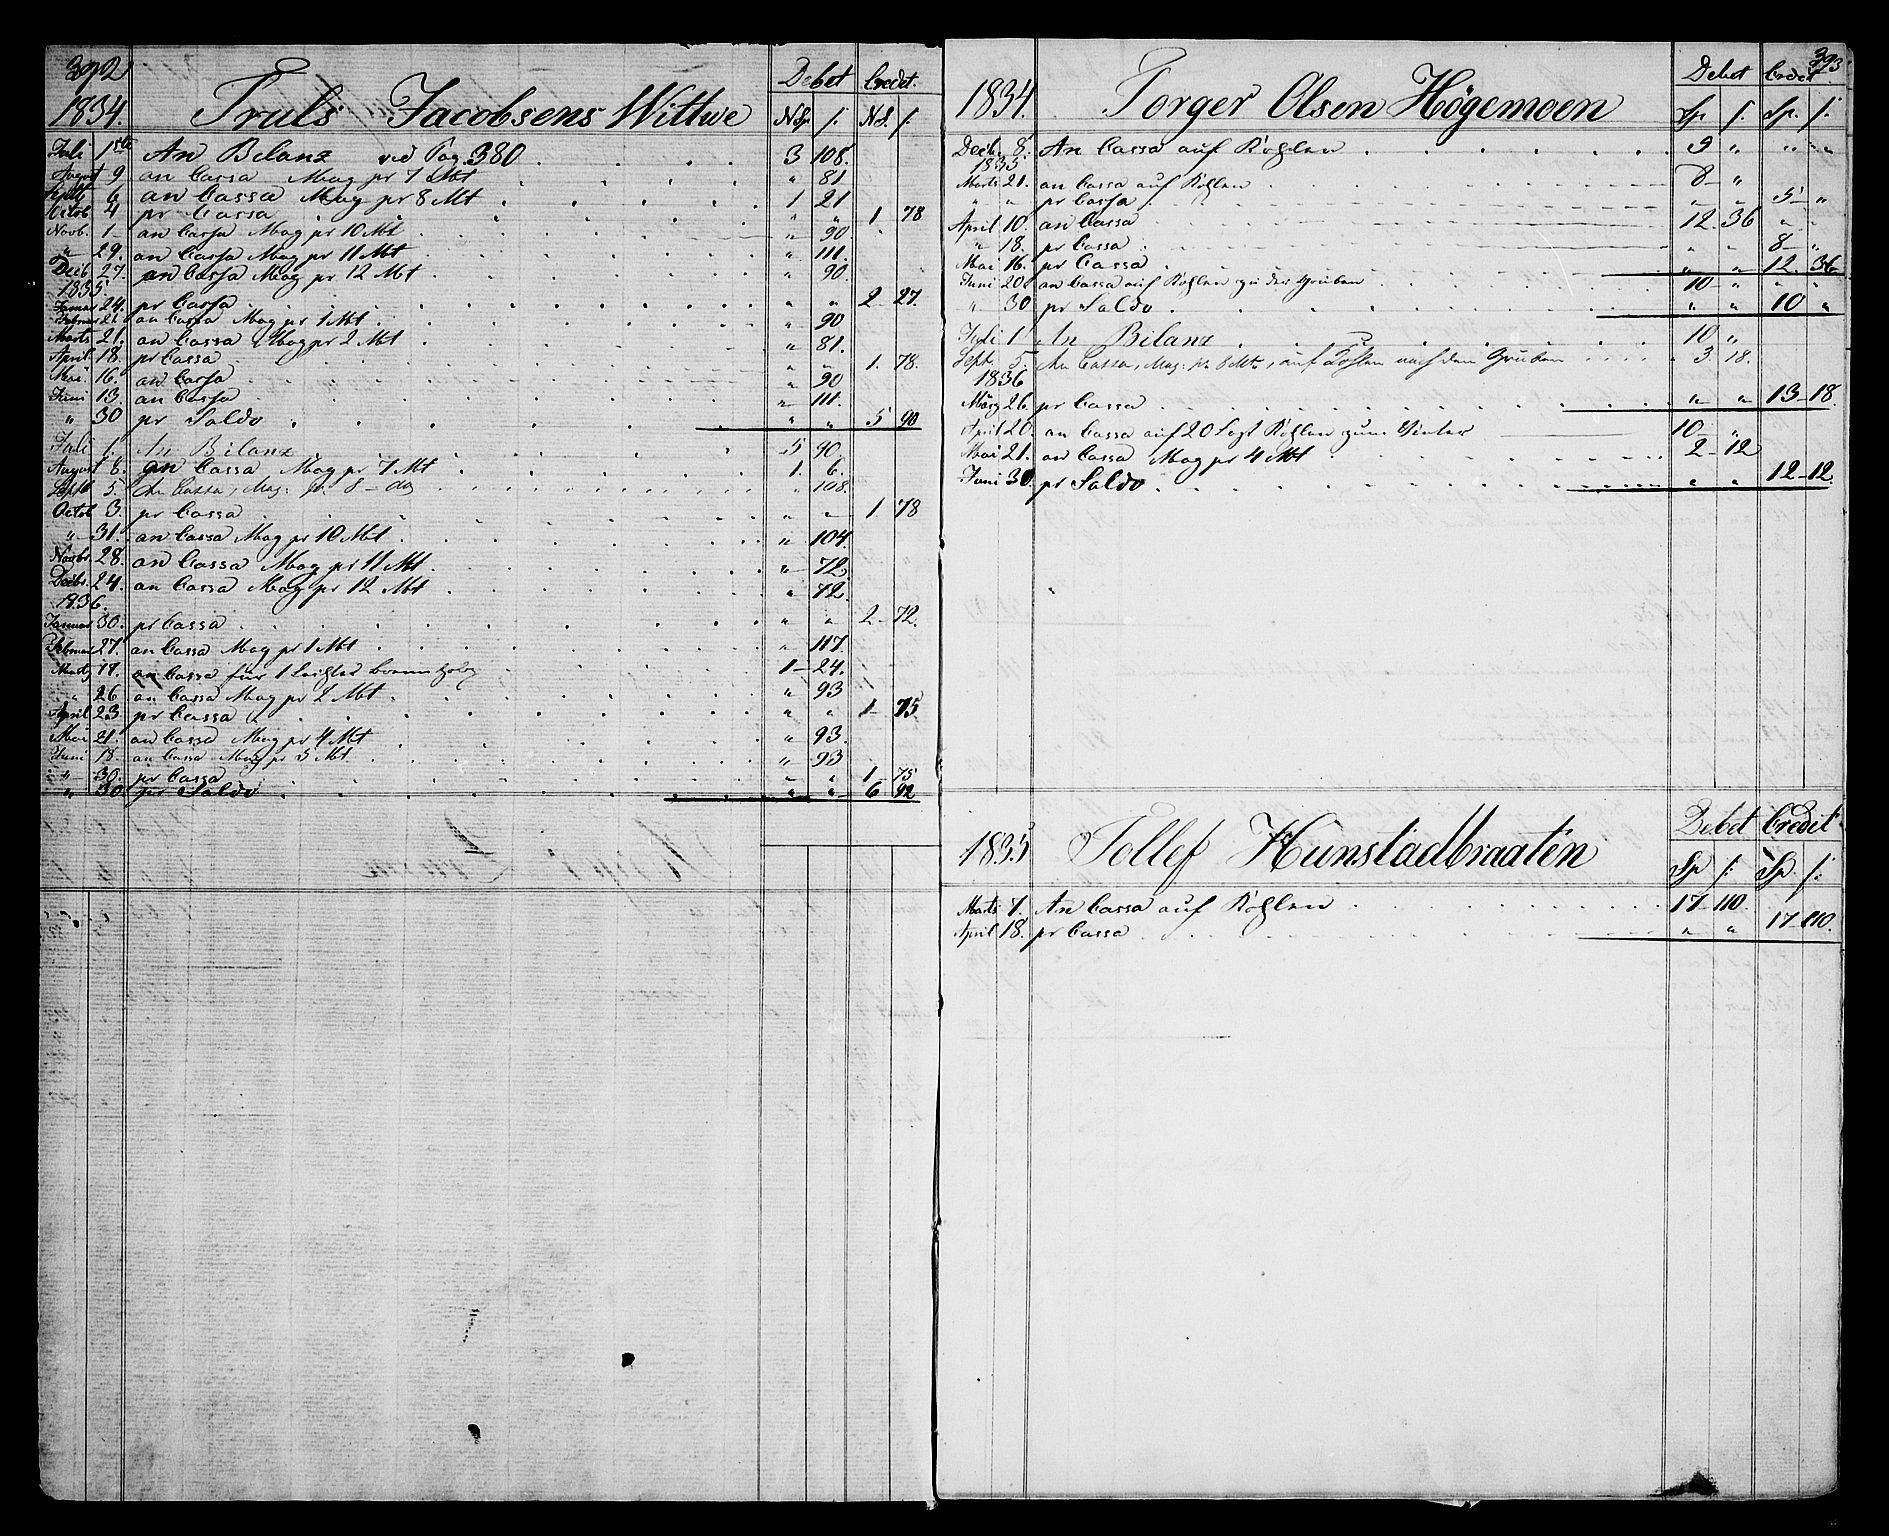 392
1834. Truls Jacobsens Wittwe Debet Credet.
N Sp f. N S. f.
Juli 1ste An Bilanz vid Pag. 380 3 108.
August 9 an Cassa Mag pr 7 Mt " 81
Septb 6 an Cassa Mag pr 8 Mt 1 21
Octob 4 pr Cassa " " 1. 78
Novb. 1 an Cassa Mag pr 10 Mt " 90
" 29. an Cassa Mag pr 11 Mt " 111.
Decb 27. an Cassa Mag pr 12 Mt " 90
1835
Januar 24. pr Cassa " " 2 27.
Februar 21 an Cassa Mag pr 1 Mt " 90
Marts 21. an Cassa Mag pr 2 Mt " 81.
April 18. pr Cassa " " 1. 78.
Mai 16. an Cassa " 90
Juni 13. an Cassa " 111.
" 30 pr Saldo " " 5 90
Juli 1. An Bilanz 5 90
August 8. an Cassa Mag pr 7 Mt 1. 6.
Septb 5 An Cassa, Mag: pr. 8 - do " 108.
Octob 3. pr Cassa " " 1 78
" 31. an Cassa Mag pr 10 Mt " 104.
Novbr. 28. an Cassa Mag pr 11 Mt " 72
Decbr. 24. an Cassa Mag pr 12 Mt " 72.
1836.
Januar 30. pr Cassa " " 2 72.
Februar 27. an Cassa Mag pr 1 Mt " 117.
Marts 19. an Cassa für 1 1 24.
" 26 an Cassa Mag pr 2 Mt " 93
April 23 pr Cassa " " 1 75.
Mai 21. an Cassa Mag pr 4 Mt " 93.
Juni 18. an Cassa Mag pr 5 Mt " 93
" 30. pr Cassa " " 1 75
" 30 pr Saldo " " 6 92
393
1834. Torger Olsen Högemoen Debet Credit
Sp f. Sp. f.
Decb. 8. An Cassa auf Kohlen 9 " " "
1835
Marts 21. an Cassa auf Kohlen 8 "
" " pr Cassa " " 5 "
April 10. an Cassa 12. 36 " "
" 18. pr Cassa " " 8 "
Mai 16. pr Cassa " " 12. 36
Juni 20. an Cassa auf Kohlen zu der Gruben 10 " " "
" 30 pr Saldo " " 10 "
Juli 1 An Bilanz 10 "
Septr. 5. An Cassa, Mag: pr 8 Mt, auf Kohlen nach dem Gruben 3. 18.
1836
März 26. pr Cassa " " 13 18.
April 20. an Cassa auf 20 Kohlen zum Winter 10 "
Mai 21. an Cassa Mag pr 4 Mt 2 12
Juni 30. pr Saldo " " 12 12.
1835 Tollef Hunstadbraatén Debet Credit
Sp f. Sp. f.
Marts 7. An Cassa auf Kohlen 17 110.
April 18. pr Cassa " " 17 110.